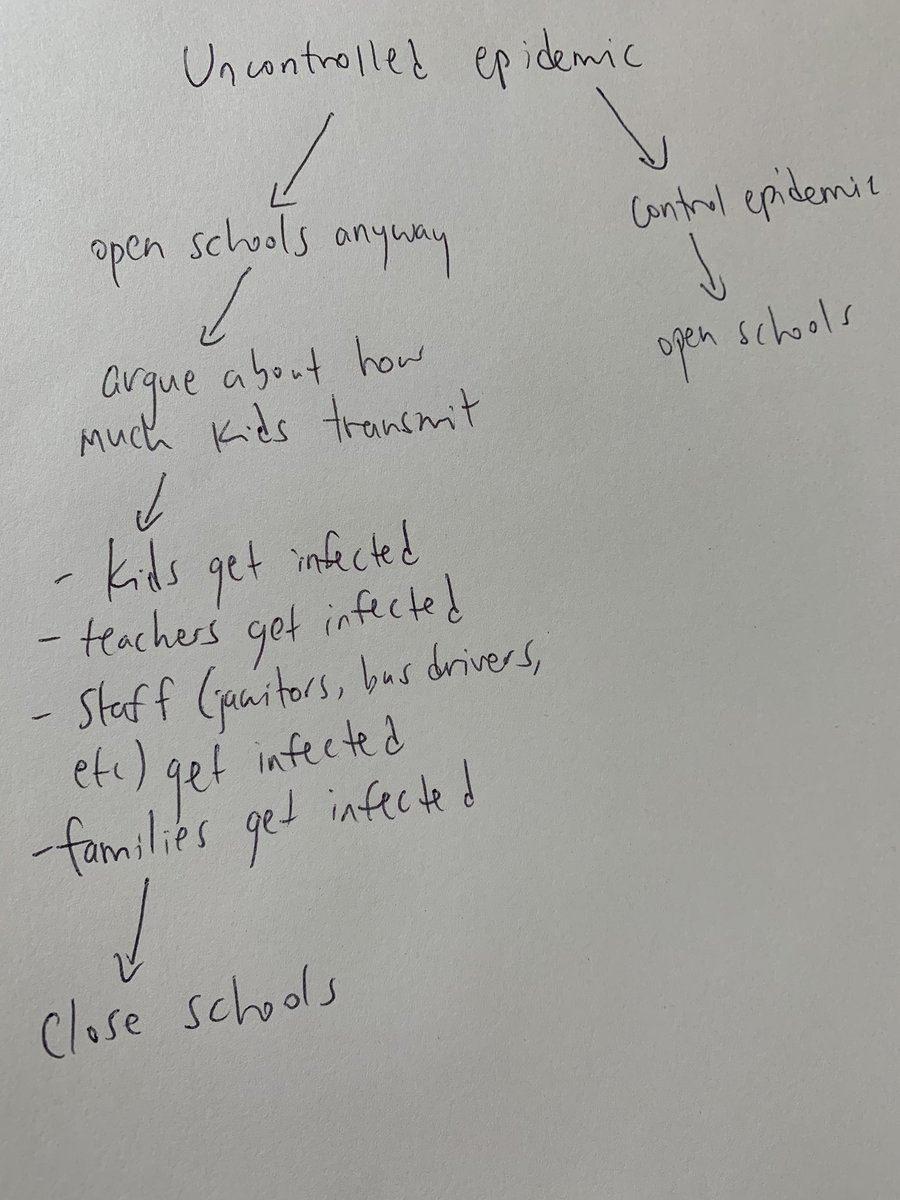 Uncontrolled epidemic
open schools anyway
argue about how
much kids transmit
- kids get infected
- teachers get infected
- Staff (janitors, bus drivers,
etc) get infected
- families get infected
Close schools
Control epidemic
open schools